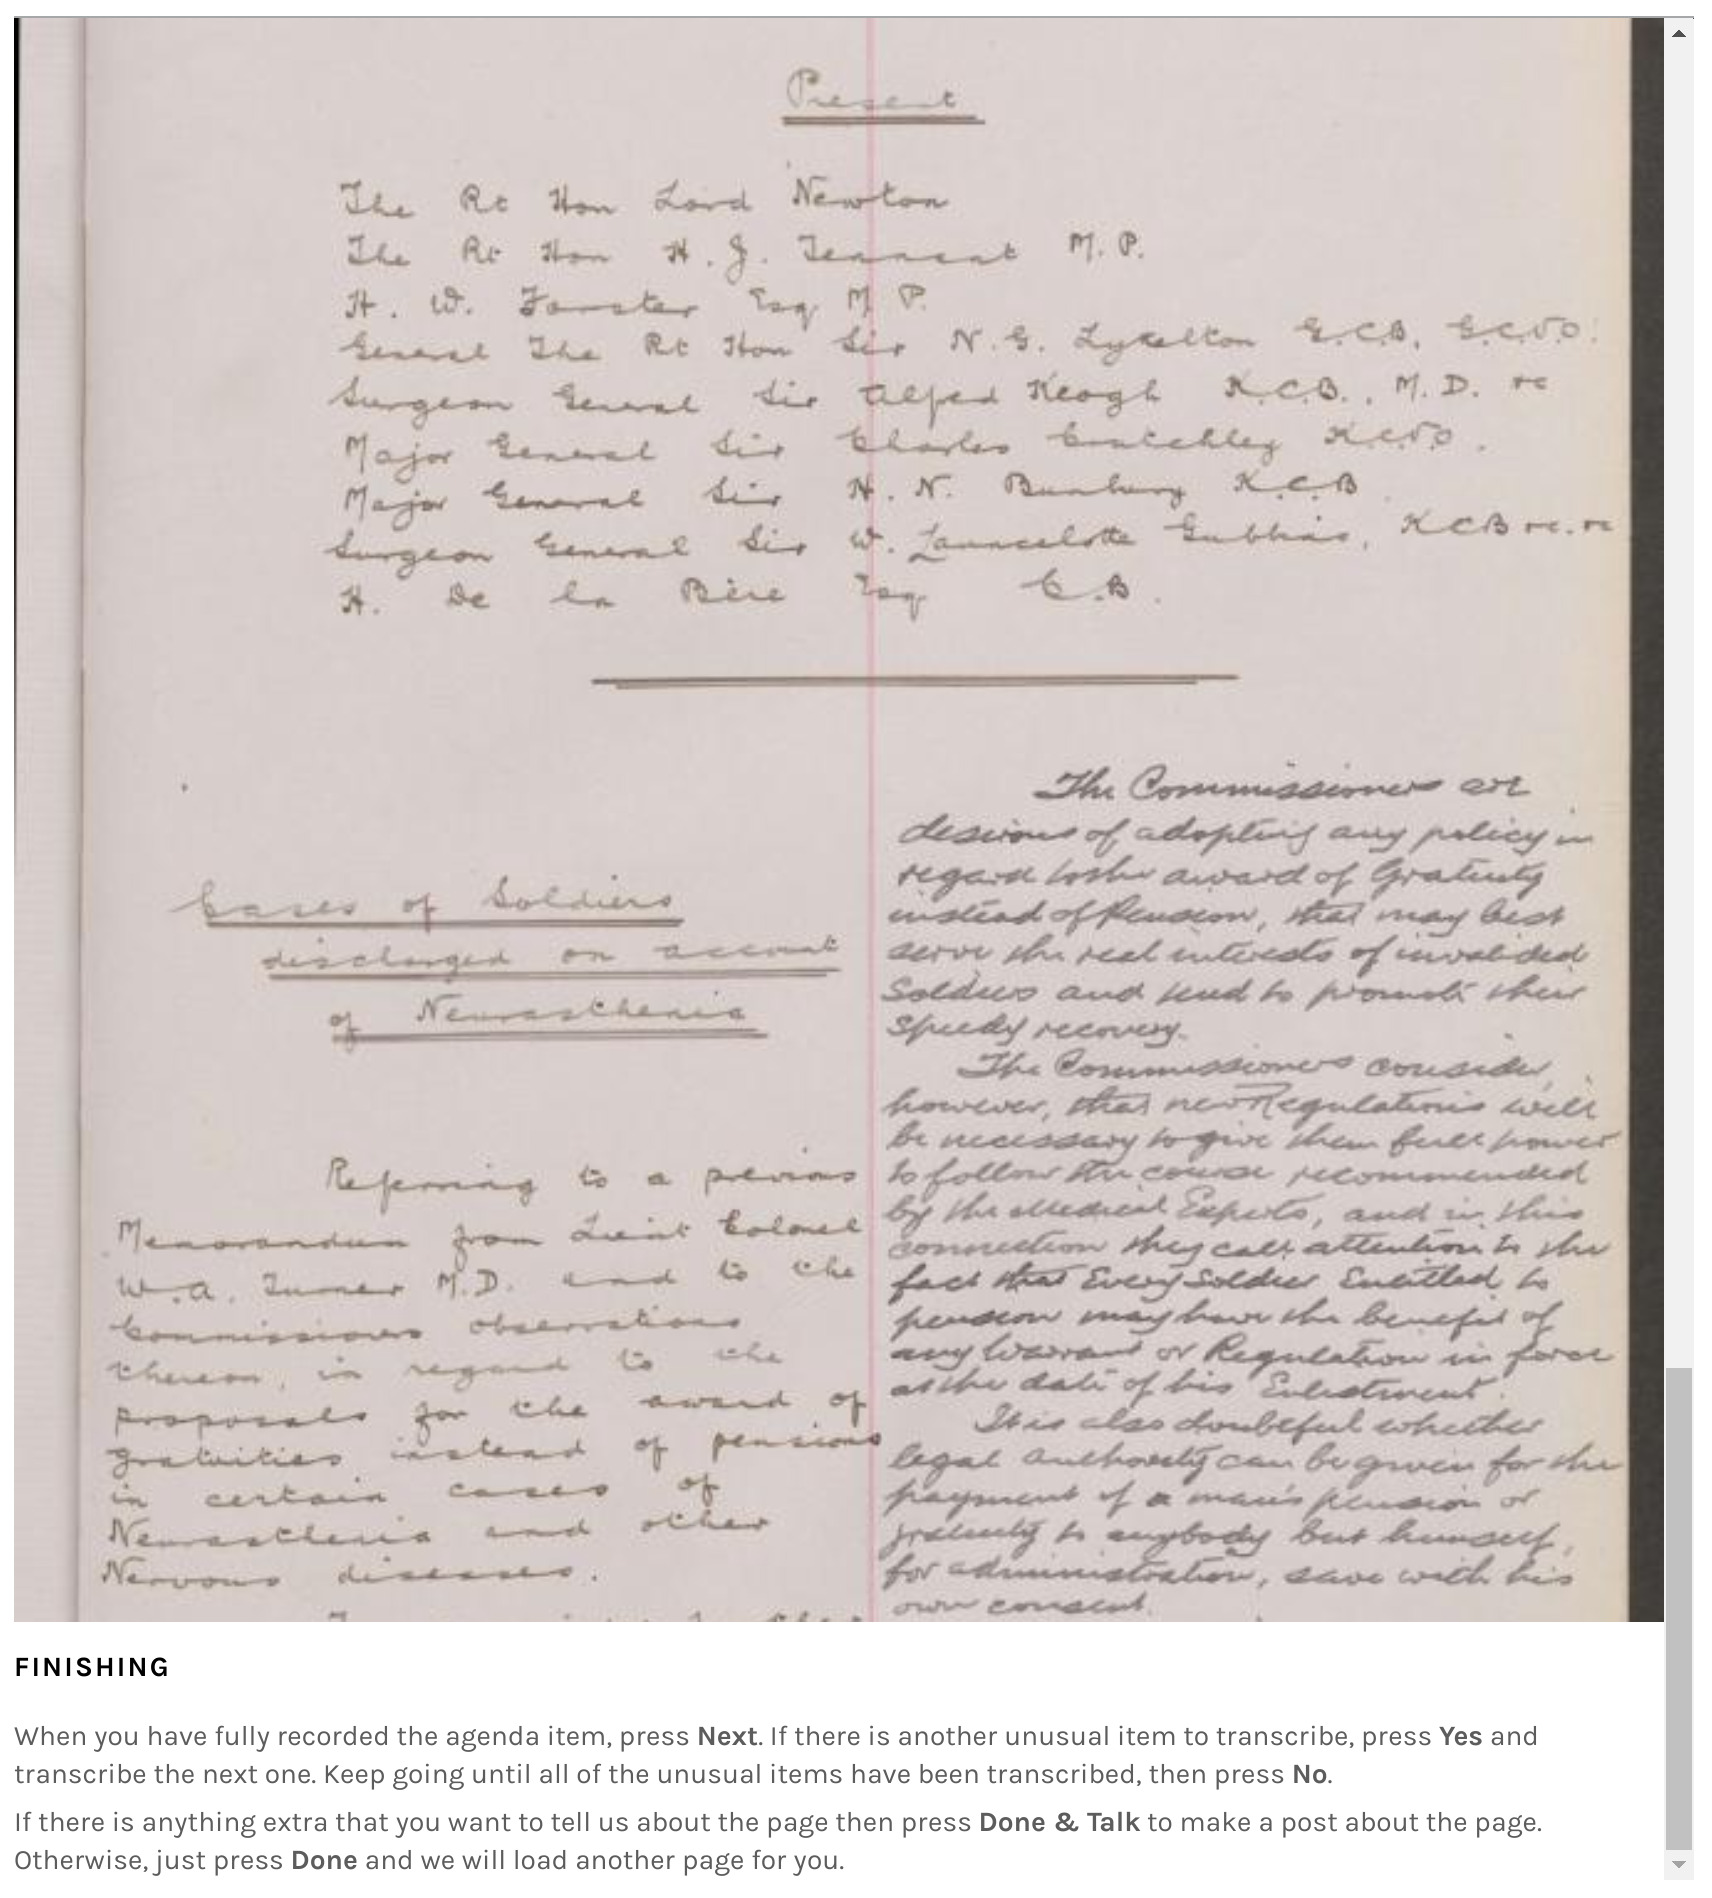 Present
The Rt Hon Lord Newton
The Rt Hon H. J. Tennant M.P.
H. W. Forster Esq M P.
General The Rt Hon Sir N. G. Lyttelton G.C.B, G.C.V.O.
Surgeon General Sir Alfred Keogh K.C.B., M.D. &c
Major General Sir Charles Crutchley K.C.V.O.
Major General Sir H. N. Bunbury K.C.B
Surgeon General Sir W. Launcelotte Gubbins, K C B &c. &c
H. De la Bère Esq C.B.
Cases of Soldiers
discharged on account
of Neurasthenia
Referring to a previous
Memorandum from Lieut Colonel
W.A. Turner M.D. and to the
Commissioners observations
thereon, in regard to the
proposals for the award of
gratuities instead of pensions
in certain cases of
Neurasthenia and other
Nervous diseases.
The Commissioners are
desirous of adopting any policy in
regard to the award of Gratuity
instead of Pension, that may best
serve the real interests of invalided
Soldiers and tend to promote their
speedy recovery.
The Commissioners consider,
however, that new Regulations will
be necessary to give them full power
to follow the course recommended
by the Medical Experts, and in this
connection they call attention to the
fact that Every Soldier Entitled to
pension may have the benefit of
any Warrant or Regulation in force
at the date of his Enlistment.
It is also doubtful whether
legal authority can be given for the
payment of a man's pension or
gratuity to anybody but himself,
for administration, save with his
own consent.
FINISHING
When you have fully recorded the agenda item, press Next. If there is another unusual item to transcribe, press Yes and
transcribe the next one. Keep going until all of the unusual items have been transcribed, then press No.
If there is anything extra that you want to tell us about the page then press Done & Talk to make a post about the page.
Otherwise, just press Done and we will load another page for you.